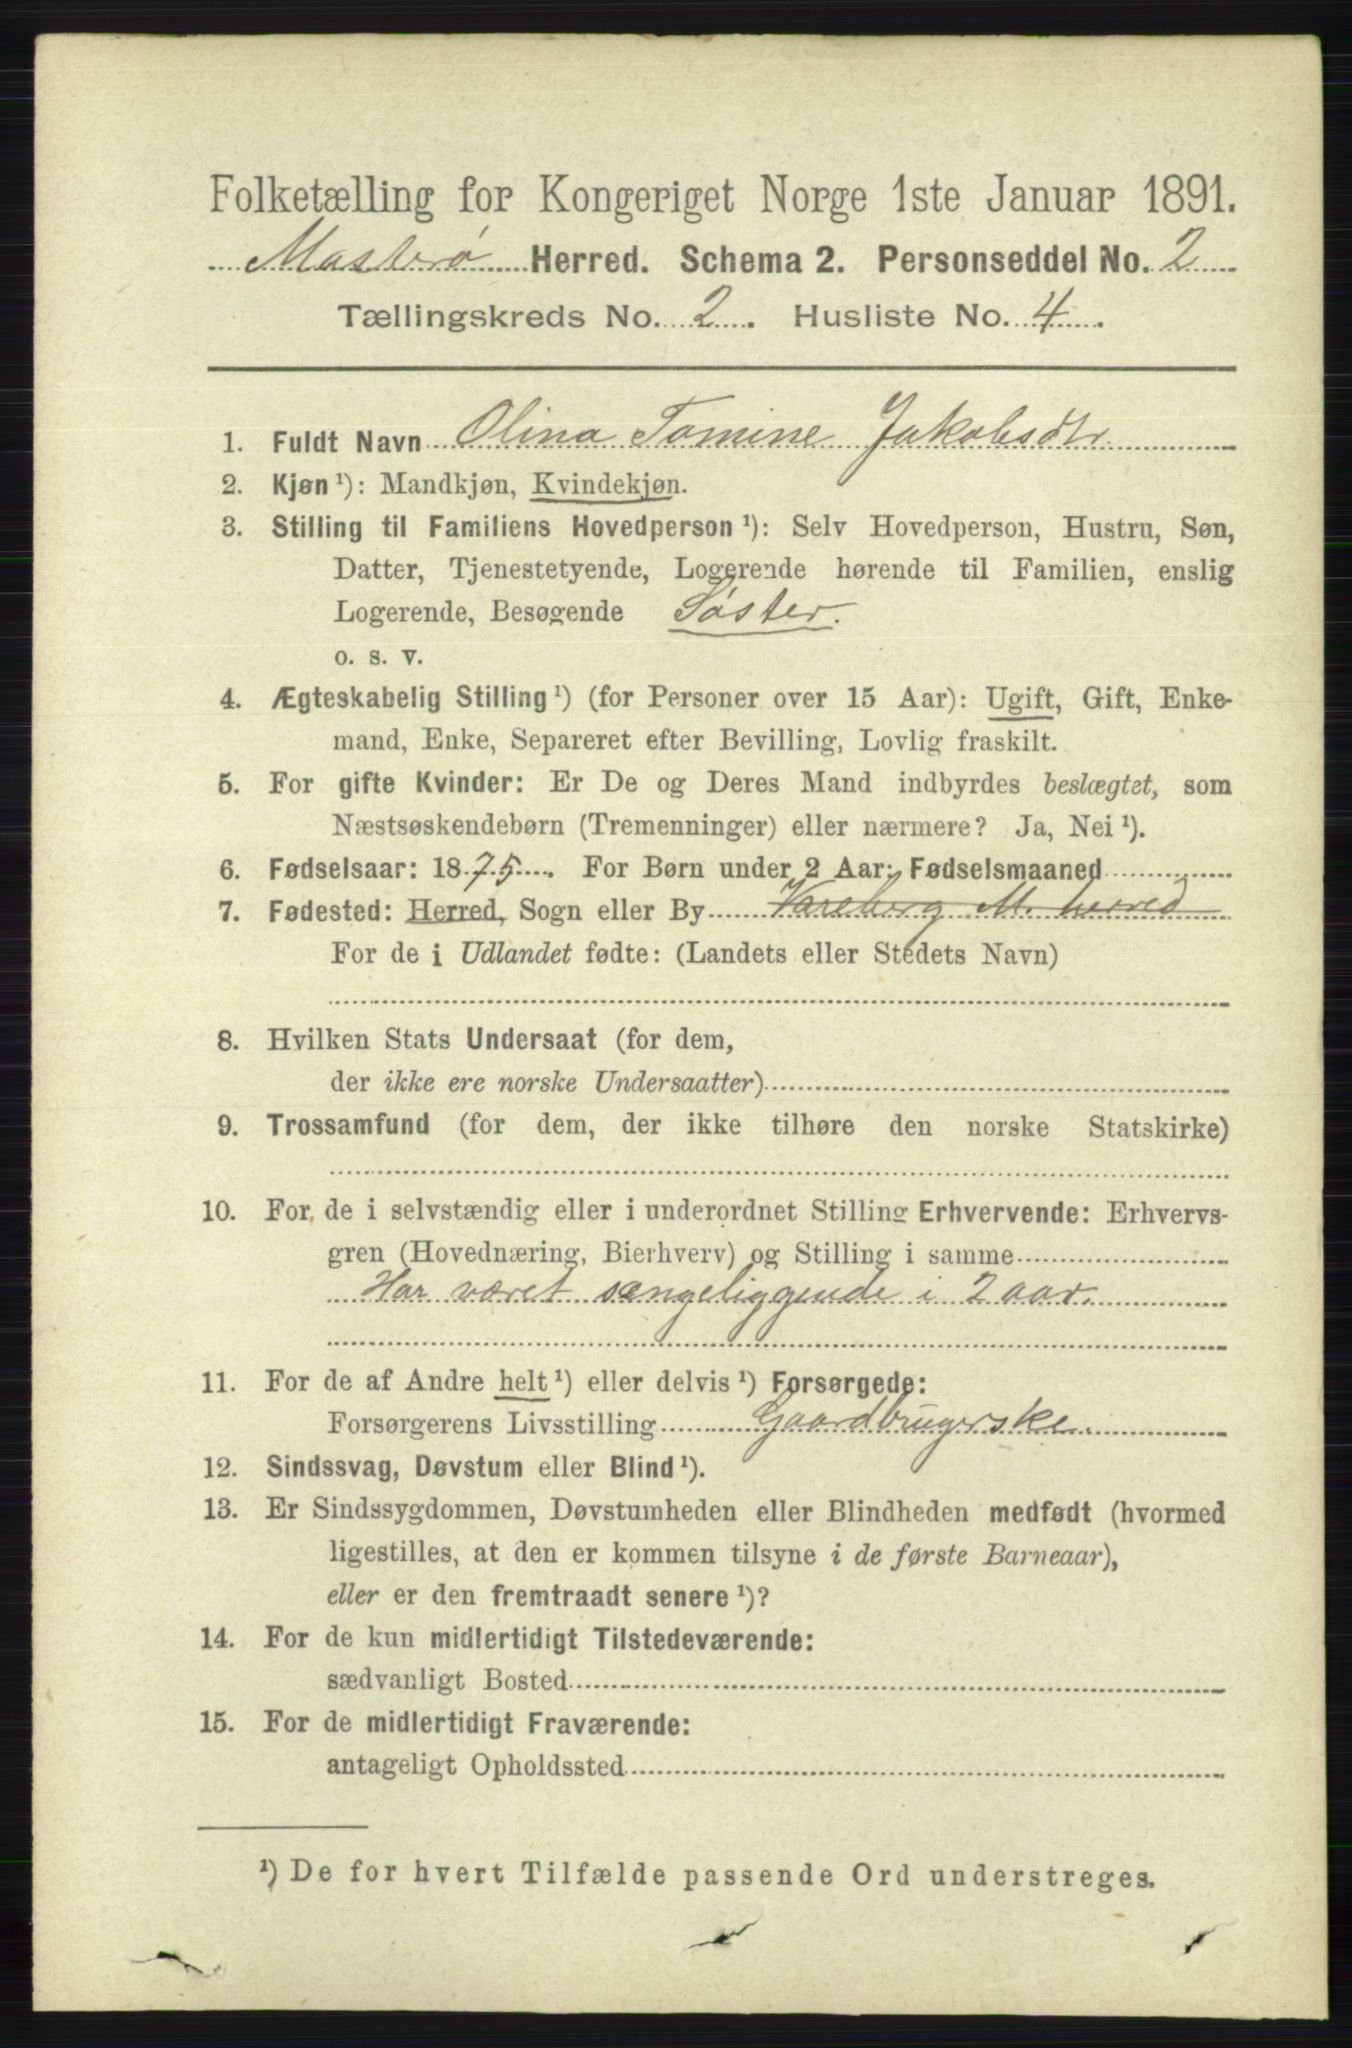 Folketælling for Kongeriget Norge 1ste Januar 1891.
Mosterø Herred. Schema 2. Personseddel No. 2
Tællingskreds No. 2. Husliste No. 4.
1. Fuldt Navn Olina Tomine Jakobsdtr
2. Kjøn ¹): Mandkjøn, Kvindekjøn.
3. Stilling til Familiens Hovedperson ¹): Selv Hovedperson, Hustru, Søn,
Datter, Tjenestetyende, Logerende hørende til Familien, enslig
Logerende, Besøgende Søster.
o. s. v.
4. Ægteskabelig Stilling ¹) (for Personer over 15 Aar): Ugift, Gift, Enke-
mand, Enke, Separeret efter Bevilling, Lovlig fraskilt.
5. For gifte Kvinder: Er De og Deres Mand indbyrdes beslægtet, som
Næstsøskendebørn (Tremenninger) eller nærmere? Ja, Nei ¹).
6. Fødselsaar: 1875. For Børn under 2 Aar: Fødselsmaaned
7. Fødested: Herred, Sogn eller By Vareberg M. herred
For de i Udlandet fødte: (Landets eller Stedets Navn)
8. Hvilken Stats Undersaat (for dem,
der ikke ere norske Undersaatter)
9. Trossamfund (for dem, der ikke tilhøre den norske Statskirke)
10. For de i selvstændig eller i underordnet Stilling Erhvervende: Erhvervs-
gren (Hovednæring, Bierhverv) og Stilling i samme
Har været sengeliggende i 2 aar.
11. For de af Andre helt ¹) eller delvis ¹) Forsørgede:
Forsørgerens Livsstilling Gaardbrugerske.
12. Sindssvag, Døvstum eller Blind ¹).
13. Er Sindssygdommen, Døvstumheden eller Blindheden medfødt (hvormed
ligestilles, at den er kommen tilsyne i de første Barneaar),
eller er den fremtraadt senere ¹)?
14. For de kun midlertidigt Tilstedeværende:
sædvanligt Bosted
15. For de midlertidigt Fraværende:
antageligt Opholdssted
¹) De for hvert Tilfælde passende Ord understreges.